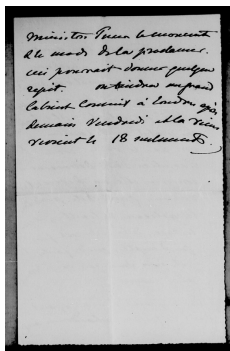 ministère Pour le moment
& le mode de la
qui pourrait donner quelque
répit. on tiendra un grand
Cabinet Council à Londres après
demain Vendredi et la Reine
revient le 18 seulement